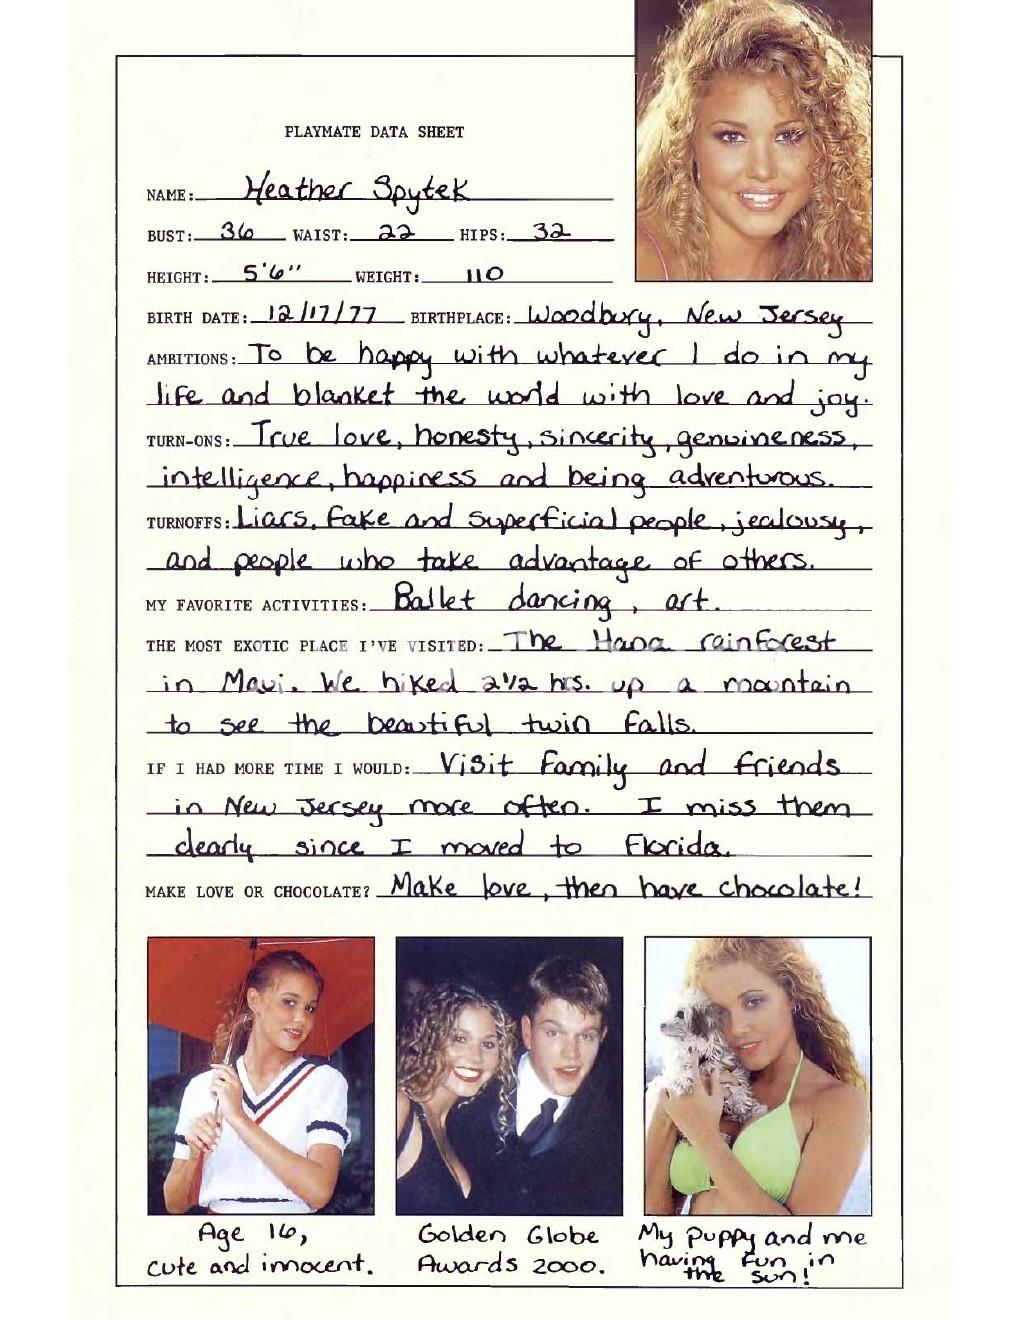 PLAYMATE DATA SHEET
NAME: Heather Spytek
BUST: 36 WAIST: 22 HIPS: 32
HEIGHT: 5'6" WEIGHT: 110
BIRTH DATE: 12/17/77 BIRTHPLACE: Woodbury, New Jersey
AMBITIONS: To be happy with whatever I do in my
life and blanket the world with love and joy.
TURN-ONS: True love, honesty, sincerity, genuineness,
intelligence, happiness and being adventurous.
TURNOFFS: Liars, fake and superficial people, jealousy,
and people who take advantage of others.
MY FAVORITE ACTIVITIES: Ballet dancing, art.
THE MOST EXOTIC PLACE I'VE VISITED: The Hana rainforest
in Maui. We hiked 2 1/2 hrs. up a mountain
to see the beautiful twin falls.
IF I HAD MORE TIME I WOULD: Visit family and friends
in New Jersey more often. I miss them
dearly since I moved to Florida.
MAKE LOVE OR CHOCOLATE? Make love, then have chocolate!
Age 16,
cute and innocent.
Golden Globe
Awards 2000.
My puppy and me
having fun in
the sun!